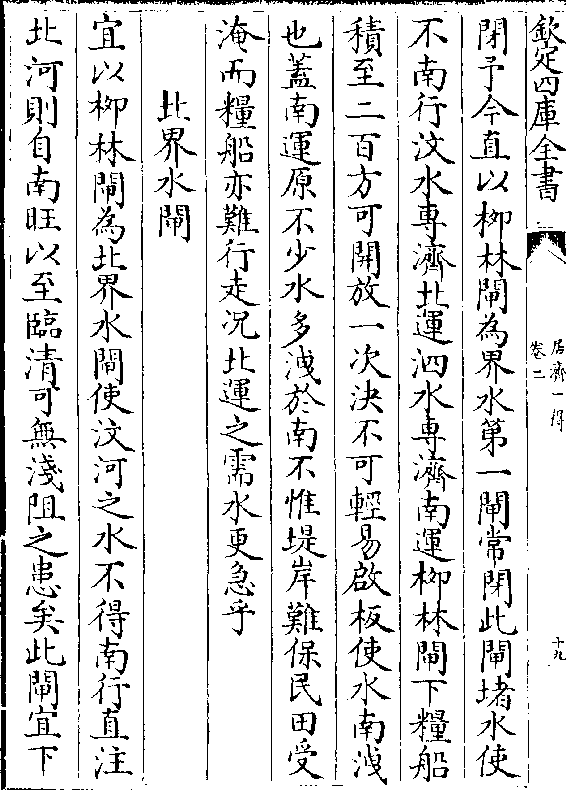 欽定四庫全書
居濟一得
卷二
十九
閉予今直以柳林閘為界水第一閘常閉此閘堵水使
不南行汶水專濟北運泗水專濟南運柳林閘下糧船
積至二百方可開放一次決不可輕易啟板使水南洩
也蓋南運原不少水多洩於南不惟堤岸難保民田受
淹而糧船亦難行走況北運之需水更急乎
北界水閘
宜以柳林閘為北界水閘使汶河之水不得南行直注
北河則自南旺以至臨清可無淺阻之患矣此閘宜下